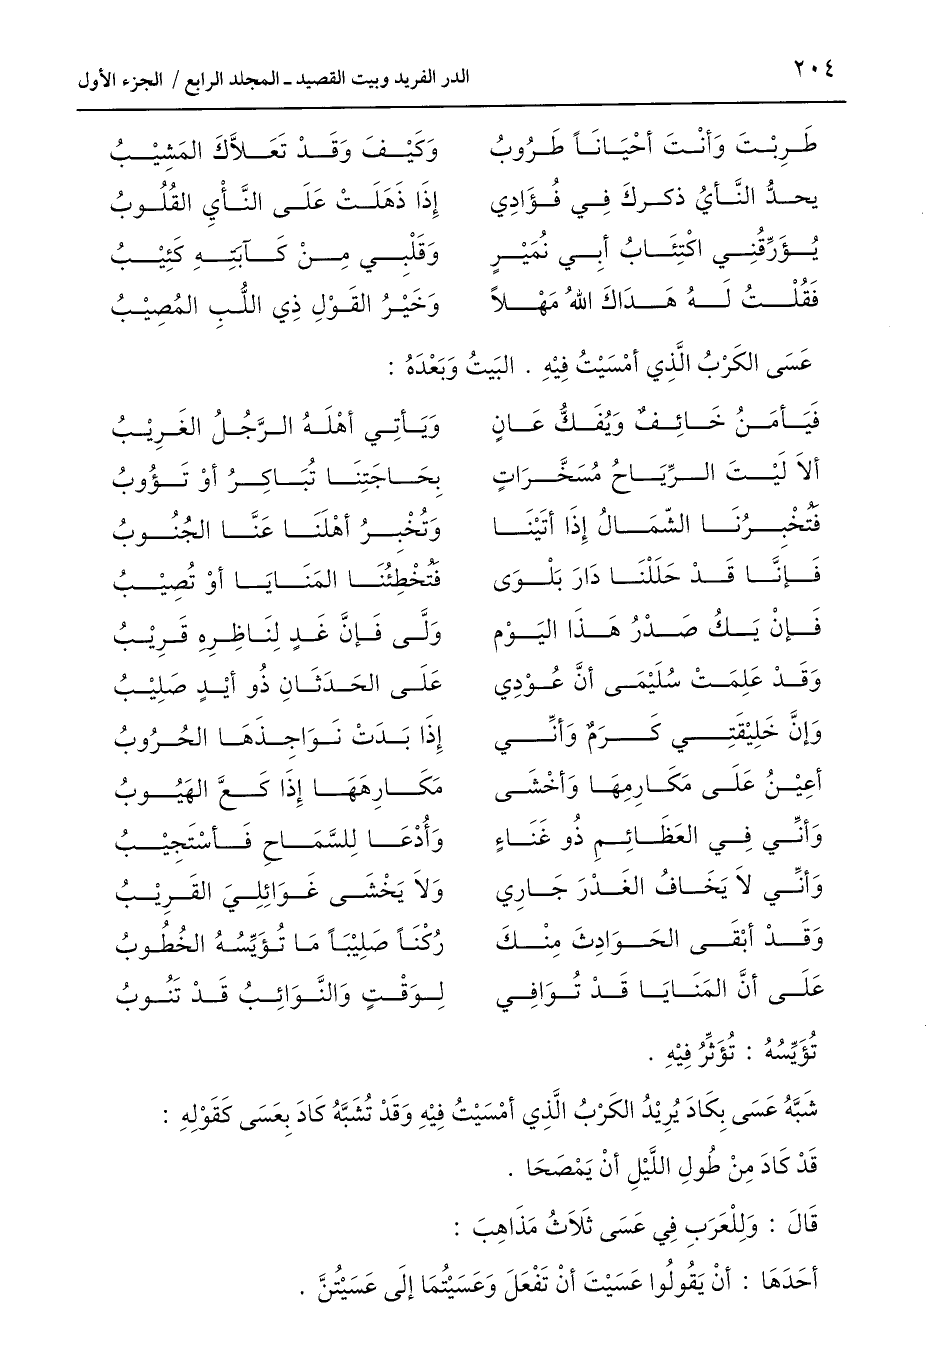 ٢٠٤ الدر الفريد وبيت القصيد ـ المجلد الرابع / الجزء الأول
طَرِبْتَ وَأَنْتَ أَحْيَانَاً طَرُوْبُ وَكَيْفَ وَقَدْ تَعَلاَّكَ المَشِيْبُ
يجدُّ النَّأيُ ذكركَ فِي فُؤَادِي إِذَا ذَهَلَتْ عَلَى النَّأيِ القُلُوبُ
يُؤَرِّقنِي اكْتِئَابُ أَبِي نُمَيْرٍ وَقَلْبِي مِنْ كَآبَتِهِ كَئِيْبُ
فَقُلْتُ لَهُ هَدَاكَ اللهُ مَهْلاً وَخَيْرُ القَوْلِ ذِي اللُّبِ المُصِيْبُ
عَسَى الكَرْبُ الَّذِي أَمْسَيْتُ فِيْهِ . البَيْتُ وَبَعْدَهُ :
فَيَأمَنُ خَائِفٌ وَيُفَكُّ عَانٍ وَيَأتِي أَهْلَهُ الرَّجُلُ الغَرِيْبُ
أَلاَ لَيْتَ الرِّيَاحَ مُسَخَّرَاتٍ بِحَاجَتِنَا تُبَاكِرُ أَوْ تَؤُوبُ
فَتُخْبِرُنَا الشَّمَالُ إِذَا أَتَيْنَا وَتُخْبِرُ أَهْلَنَا عَنَّا الجُنُوبُ
فَإِنَّا قَدْ حَلَلْنَا دَارَ بَلْوَى فَتُخْطِئُنَا المَنَايَا أَوْ تُصِيْبُ
فَإِنْ يَكُ صَدْرُ هَذَا اليَوْمِ وَلَّى فَإِنَّ غَدٍ لِنَاظِرِهِ قَرِيْبُ
وَقَدْ عَلِمَتْ سُلَيْمَى أَنَّ عُوْدِي عَلَى الحَدَثَانِ ذُو أَيْدٍ صَلِيْبُ
وَإِنَّ خَلِيْقَتِي كَرَمٌ وَأَنِّي إِذَا بَدَتْ نَوَاجِذهَا الحُرُوْبُ
أُعِيْنُ عَلَى مَكَارِمِهَا وَأَخْشَى مَكَارِهَهَا إِذَا كَعَّ الهَيُوبُ
وَأَنِّي فِي العَظَائِمِ ذُو غَنَاءٍ وَأُدْعَا لِلسَّمَاحِ فَأَسْتَجِيْبُ
وَأَنِّي لاَ يَخَافُ الغَدْرَ جَارِي وَلاَ يَخْشَى غَوَائِلِيَ القَرِيْبُ
وَقَدْ أَبْقَى الحَوَادِثُ مِنْكَ رُكْنَاً صَلِيْبَاً مَا تُؤَيِّسُهُ الخُطُوبُ
عَلَى أَنَّ المَنَايَا قَدْ تُوَافِي لِوَقْتٍ وَالنَّوَائِبُ قَدْ تَنُوبُ
تُؤَيِّسُهُ : تُؤَثِّرُ فِيْهِ .
شَبَّهُ عَسَى بِكَادَ يُرِيْدُ الكَرْبُ الَّذِي أَمْسَيْتُ فِيْهِ وَقَدْ تُشَبَّهُ كَادَ بِعَسَى كَقَوْلِهِ :
قَدْ كَادَ مِنْ طُولِ اللَّيْلِ أَنْ يَمْصَحَا .
قَالَ : وَلِلْعَرَبِ فِي عَسَى ثَلاَثُ مَذَاهِبَ :
أَحَدَهَا : أَنْ يَقُولُوا عَسَيْتَ أَنْ تَفْعَلَ وَعَسَيْتُمَا إِلَى عَسَيْتُنَّ .